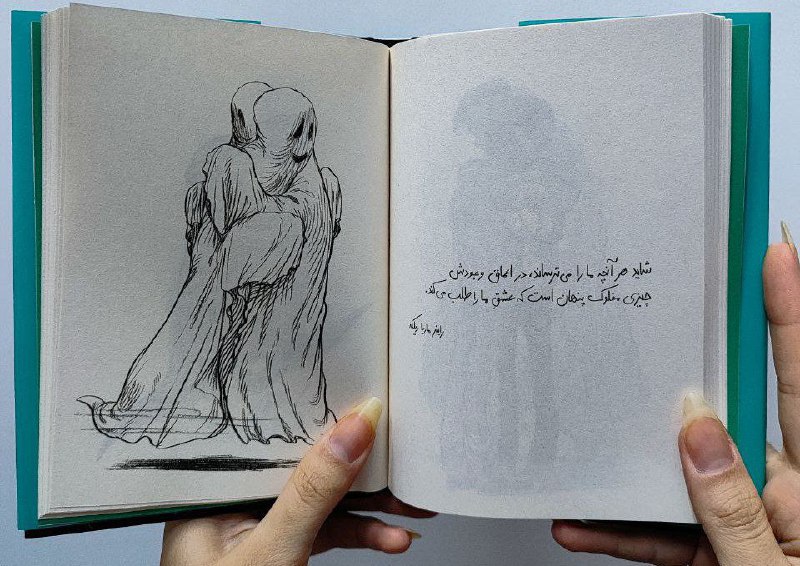 شاید هر آنچه ما را می‌ترساند، در اعماق وجودش
چیزی مفلوک پنهان است که عشق ما را طلب می‌کند.
راینر ماریا ریلکه